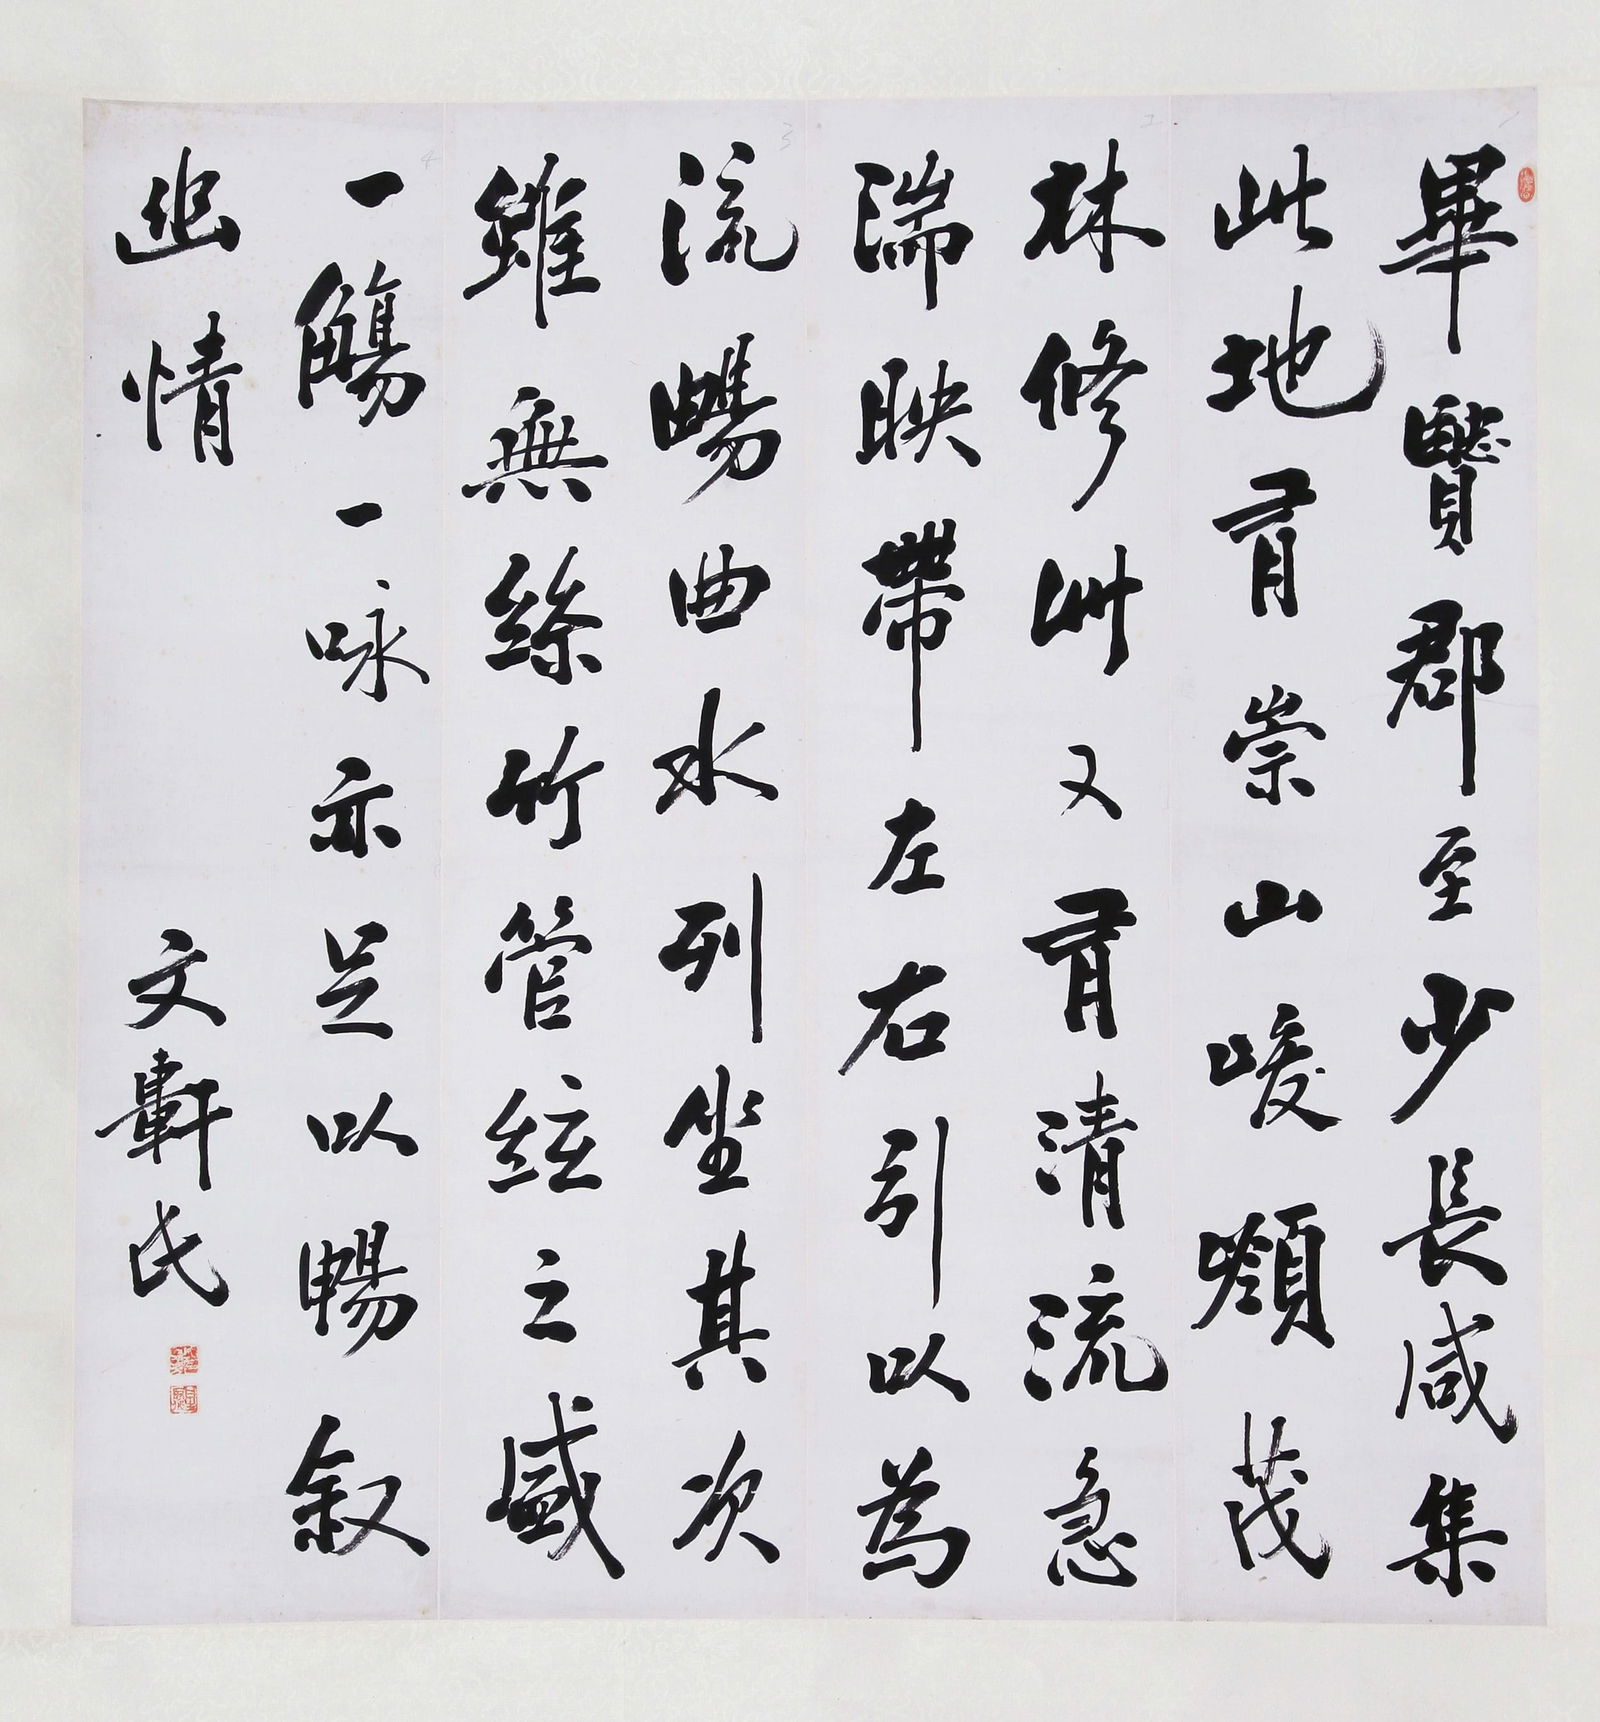 畢贒郡至少長咸集
此地有崇山峻嶺茂
林修竹又有清流急
湍映帶左右引以為
流觴曲水列坐其次
雖無絲竹管絃之盛
一觴一咏亦足以暢叙
幽情
文軒氏